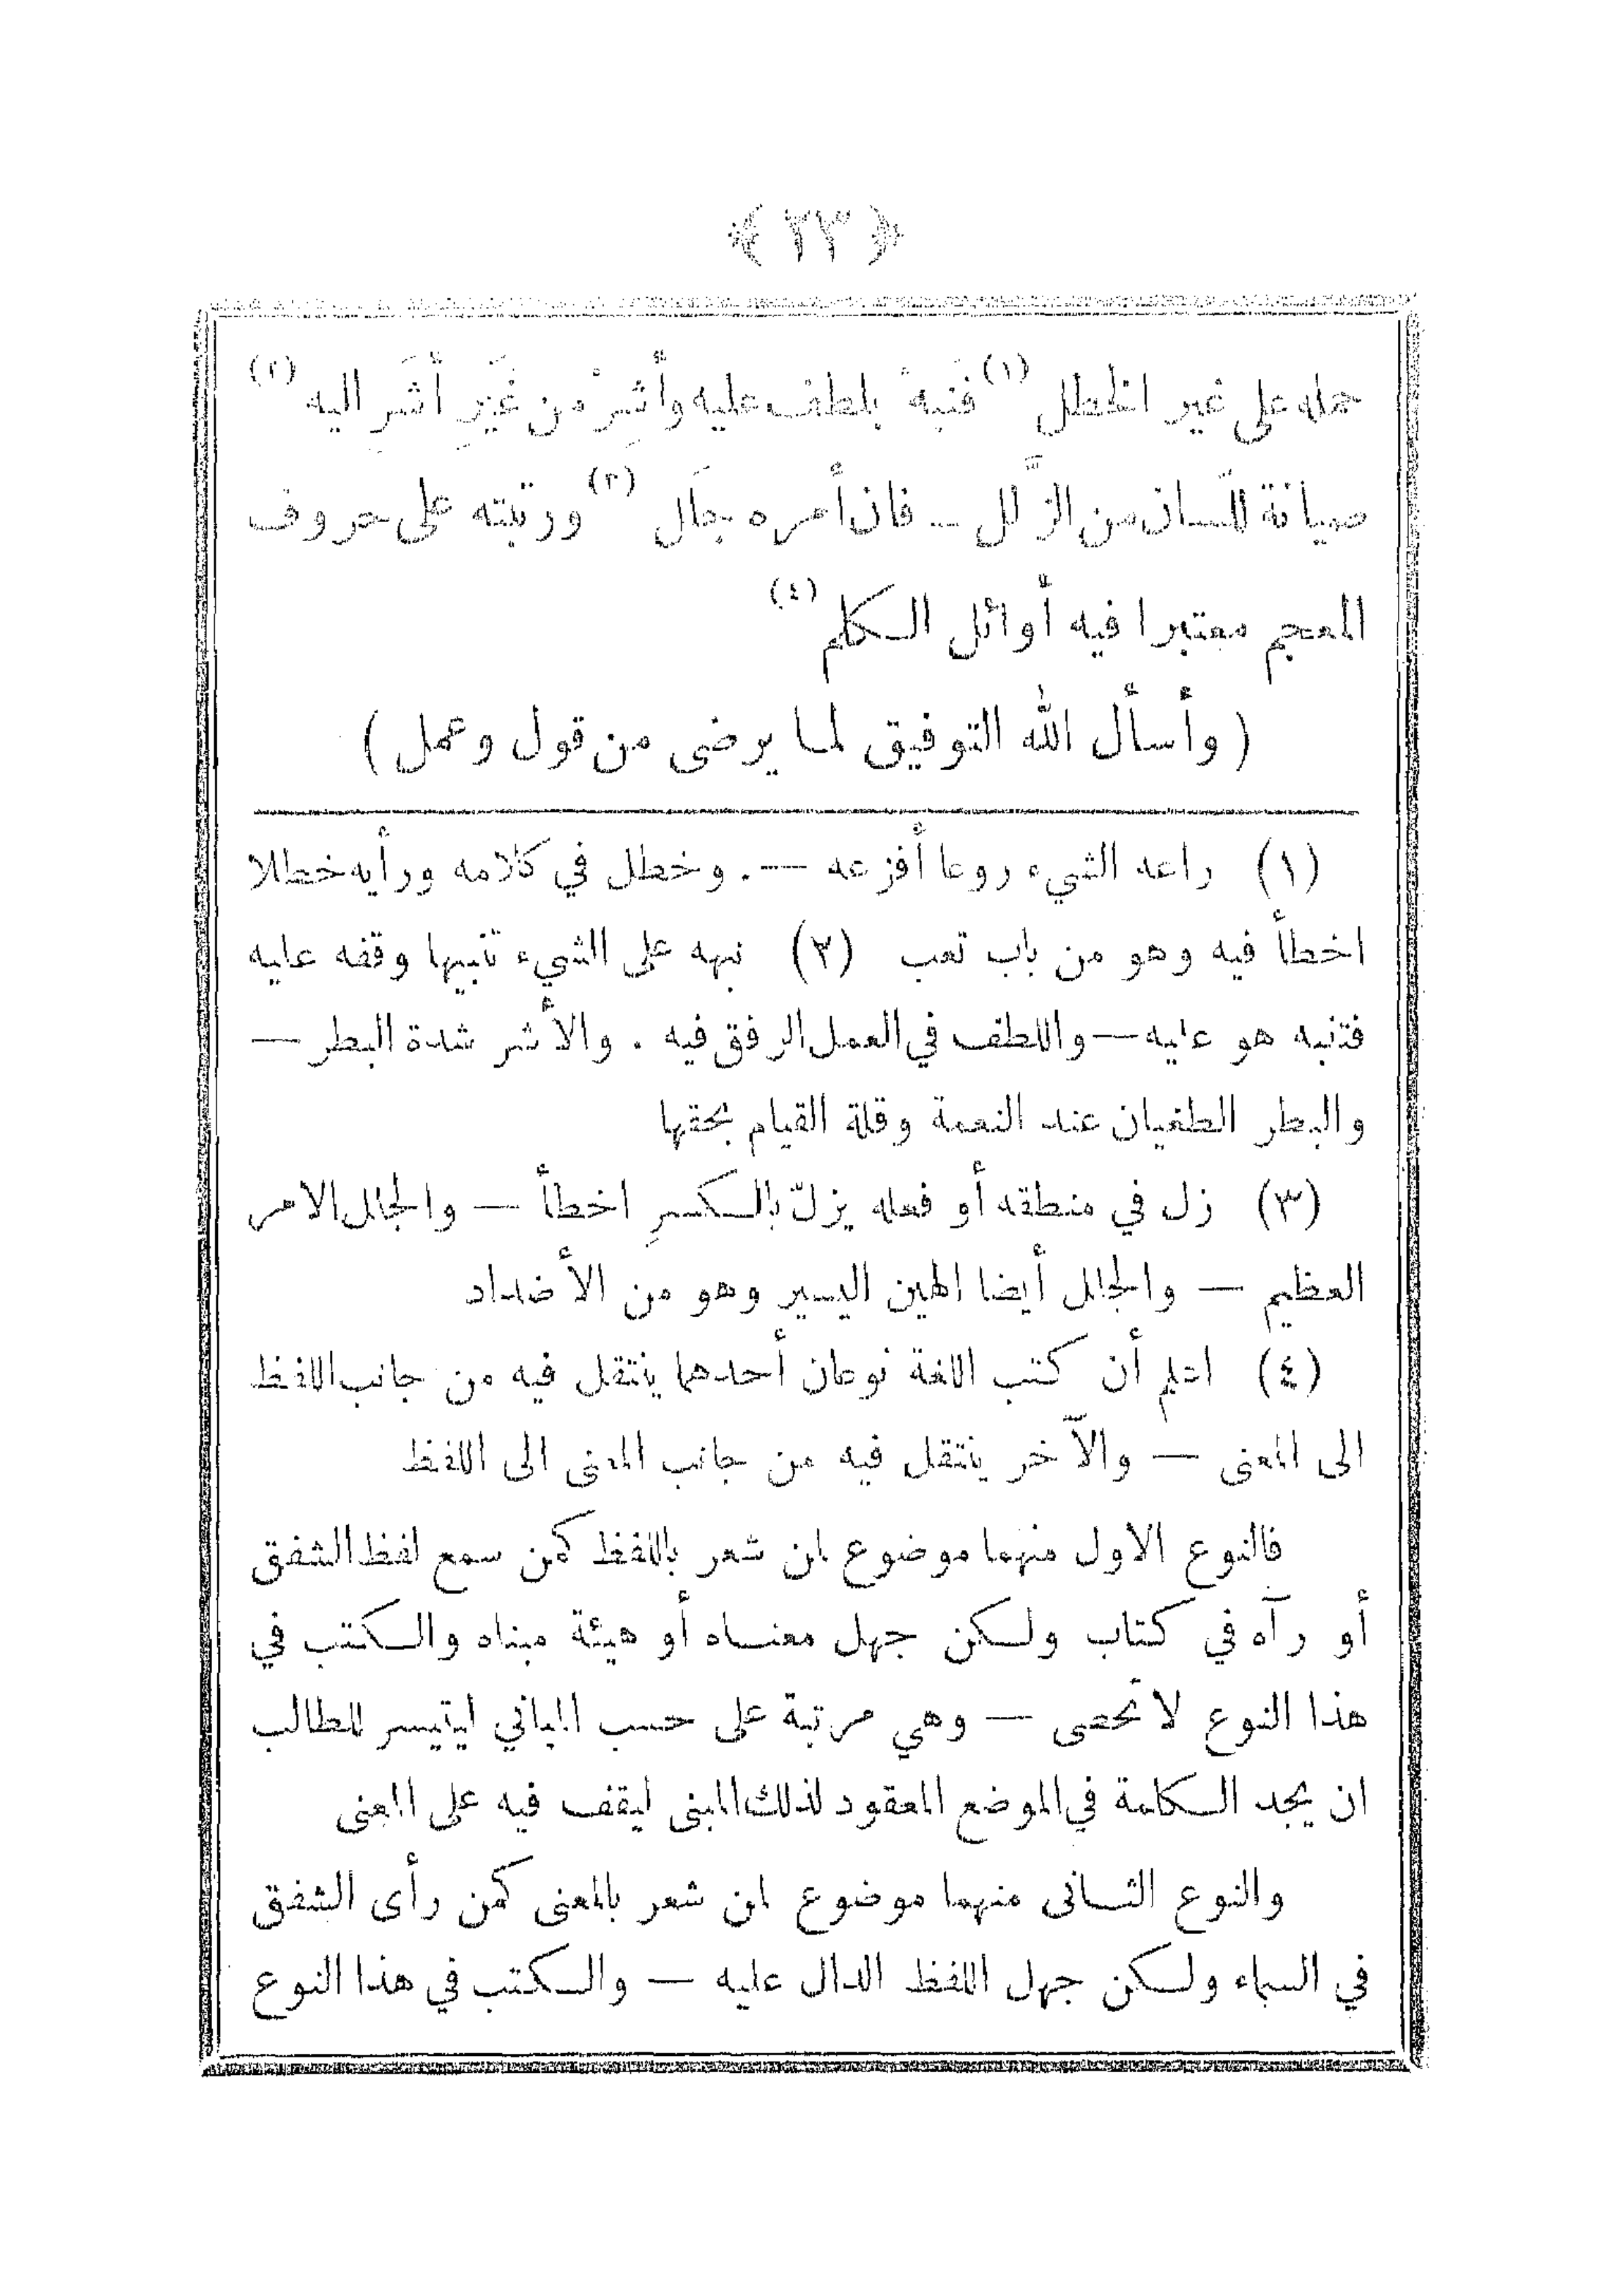 ﴿ ٢٣ ﴾
حمله على غير الخطل (١) فنبهْ بلطف عليه وأَشِرْ من غَيْرِ أَشَرٍ اليه (٢)
صيانة للسان من الزَّلل — فان أمره جلَل (٣) ورتبته على حروف
المعجم معتبرا فيه أوائل الكلم (٤)
( وأسأل الله التوفيق لما يرضى من قول وعمل )
(١) راعه الشيء روعا أفزعه —. وخطل في كلامه ورأيه خطلا
اخطأ فيه وهو من باب تعب (٢) نبهه على الشيء تنبيها وقفه عليه
فتنبه هو عليه — واللطف في العمل الرفق فيه . والأشر شدة البطر —
والبطر الطغيان عند النعمة وقلة القيام بحقها
(٣) زل في منطقه أو فعله يزلّ بالكسرِ اخطأ — والجلل الامر
العظيم — والجلل أيضا الهين اليسير وهو من الأضداد
(٤) اعلم أن كتب اللغة نوعان أحدهما ينتقل فيه من جانب اللفظ
الى المعنى — والآخر ينتقل فيه من جانب المعنى الى اللفظ
فالنوع الاول منهما موضوع لمن شعر باللفظ كمن سمع لفظ الشفق
أو رآه في كتاب ولكن جهل معناه أو هيئة مبناه والكتب في
هذا النوع لا تحصى — وهي مرتبة على حسب المباني ليتيسر للطالب
ان يجد الكلمة في الموضع المعقود لذلك المبنى ليقف فيه على المعنى
والنوع الثانى منهما موضوع لمن شعر بالمعنى كمن رأى الشفق
في السماء ولكن جهل اللفظ الدال عليه — والكتب في هذا النوع